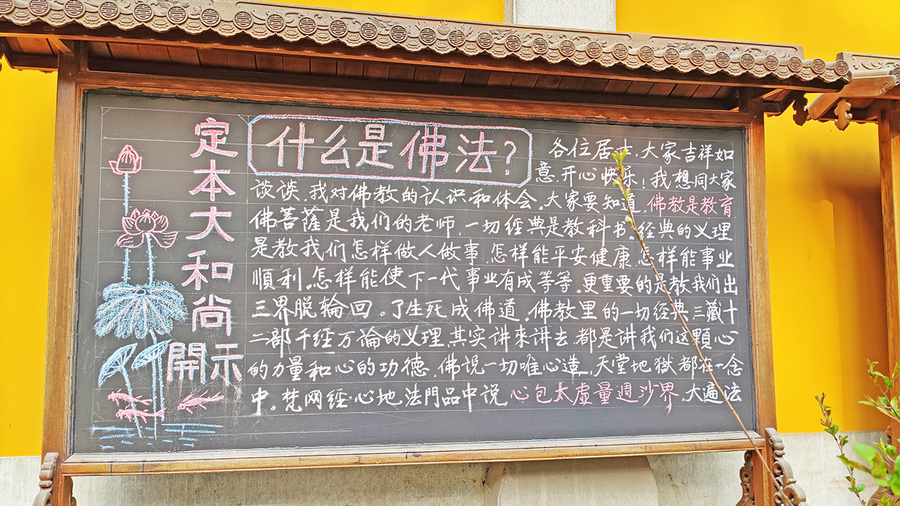 定本大和尚開示
什么是佛法？
各位居士.大家吉祥如
意.开心快乐！我想同大家
谈谈.我对佛教的认识和体会。大家要知道.佛教是教育
佛菩萨是我们的老师.一切经典是教科书.经典的义理
是教我们怎样做人做事.怎样能平安健康.怎样能事业
順利.怎样能使下一代事业有成等等.更重要的是教我们出
三界脱輪回。了生死成佛道.佛教里的一切经典三藏十
二部千经万论的义理其实讲来讲去都是讲我们这顆心
的力量和心的功德.佛说一切唯心造.天堂地獄都在一念
中.梵网经心地法門品中说心包太虚量週沙界.大遍法